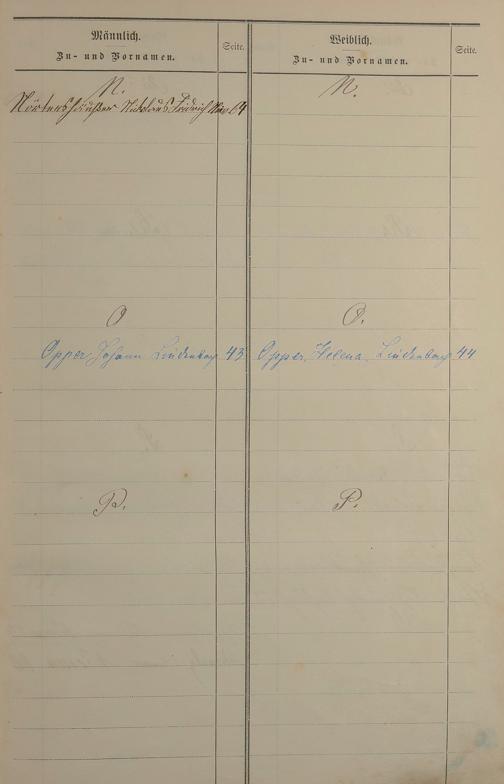 Männlich.
Zu- und Vornamen.
Seite.
Weiblich.
Zu- und Vornamen.
Seite.
N.
N.
Nörtershäußer Nicolaus Fridrich 64
O
O.
Opper, Johann Lindenbach 43
Opper, Helena, Lindenbach 44
P.
P.